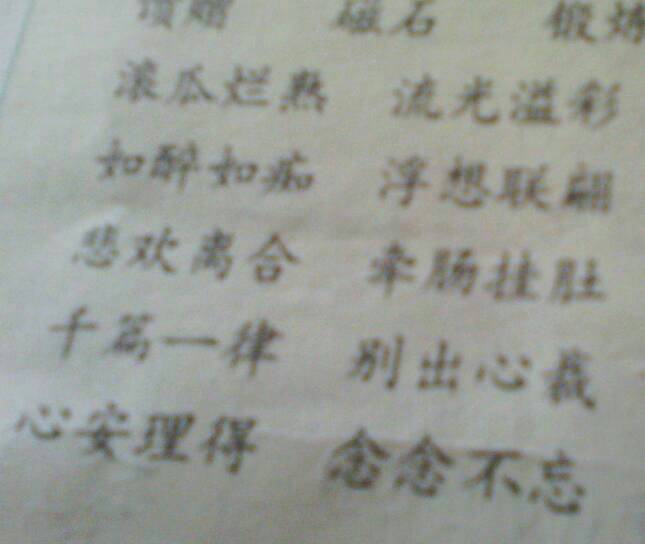 馈赠 磁石 锻炼
滚瓜烂熟 流光溢彩
如醉如痴 浮想联翩
悲欢离合 牵肠挂肚
千篇一律 别出心裁
心安理得 念念不忘